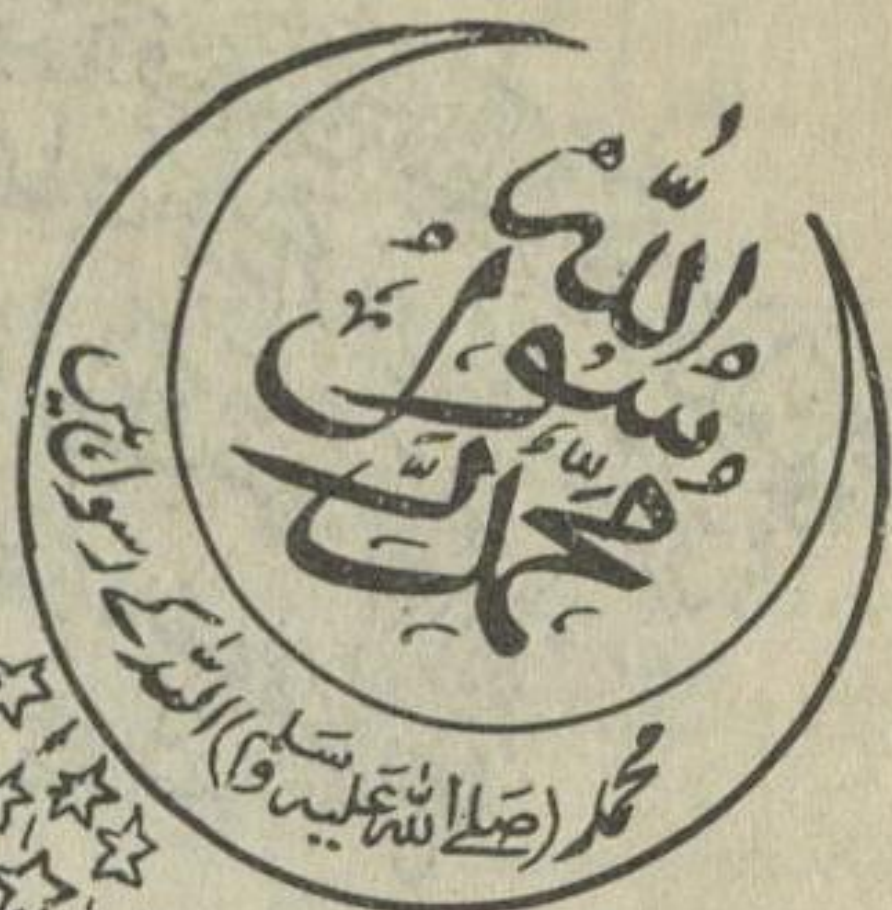 مُحَمَّدٌ رَّسُوْلُ اللّٰهِ
محمد (صَلَے اللّٰہُ عَلَیہِ وَسَلَم) اللّٰہ کے رسول ہیں